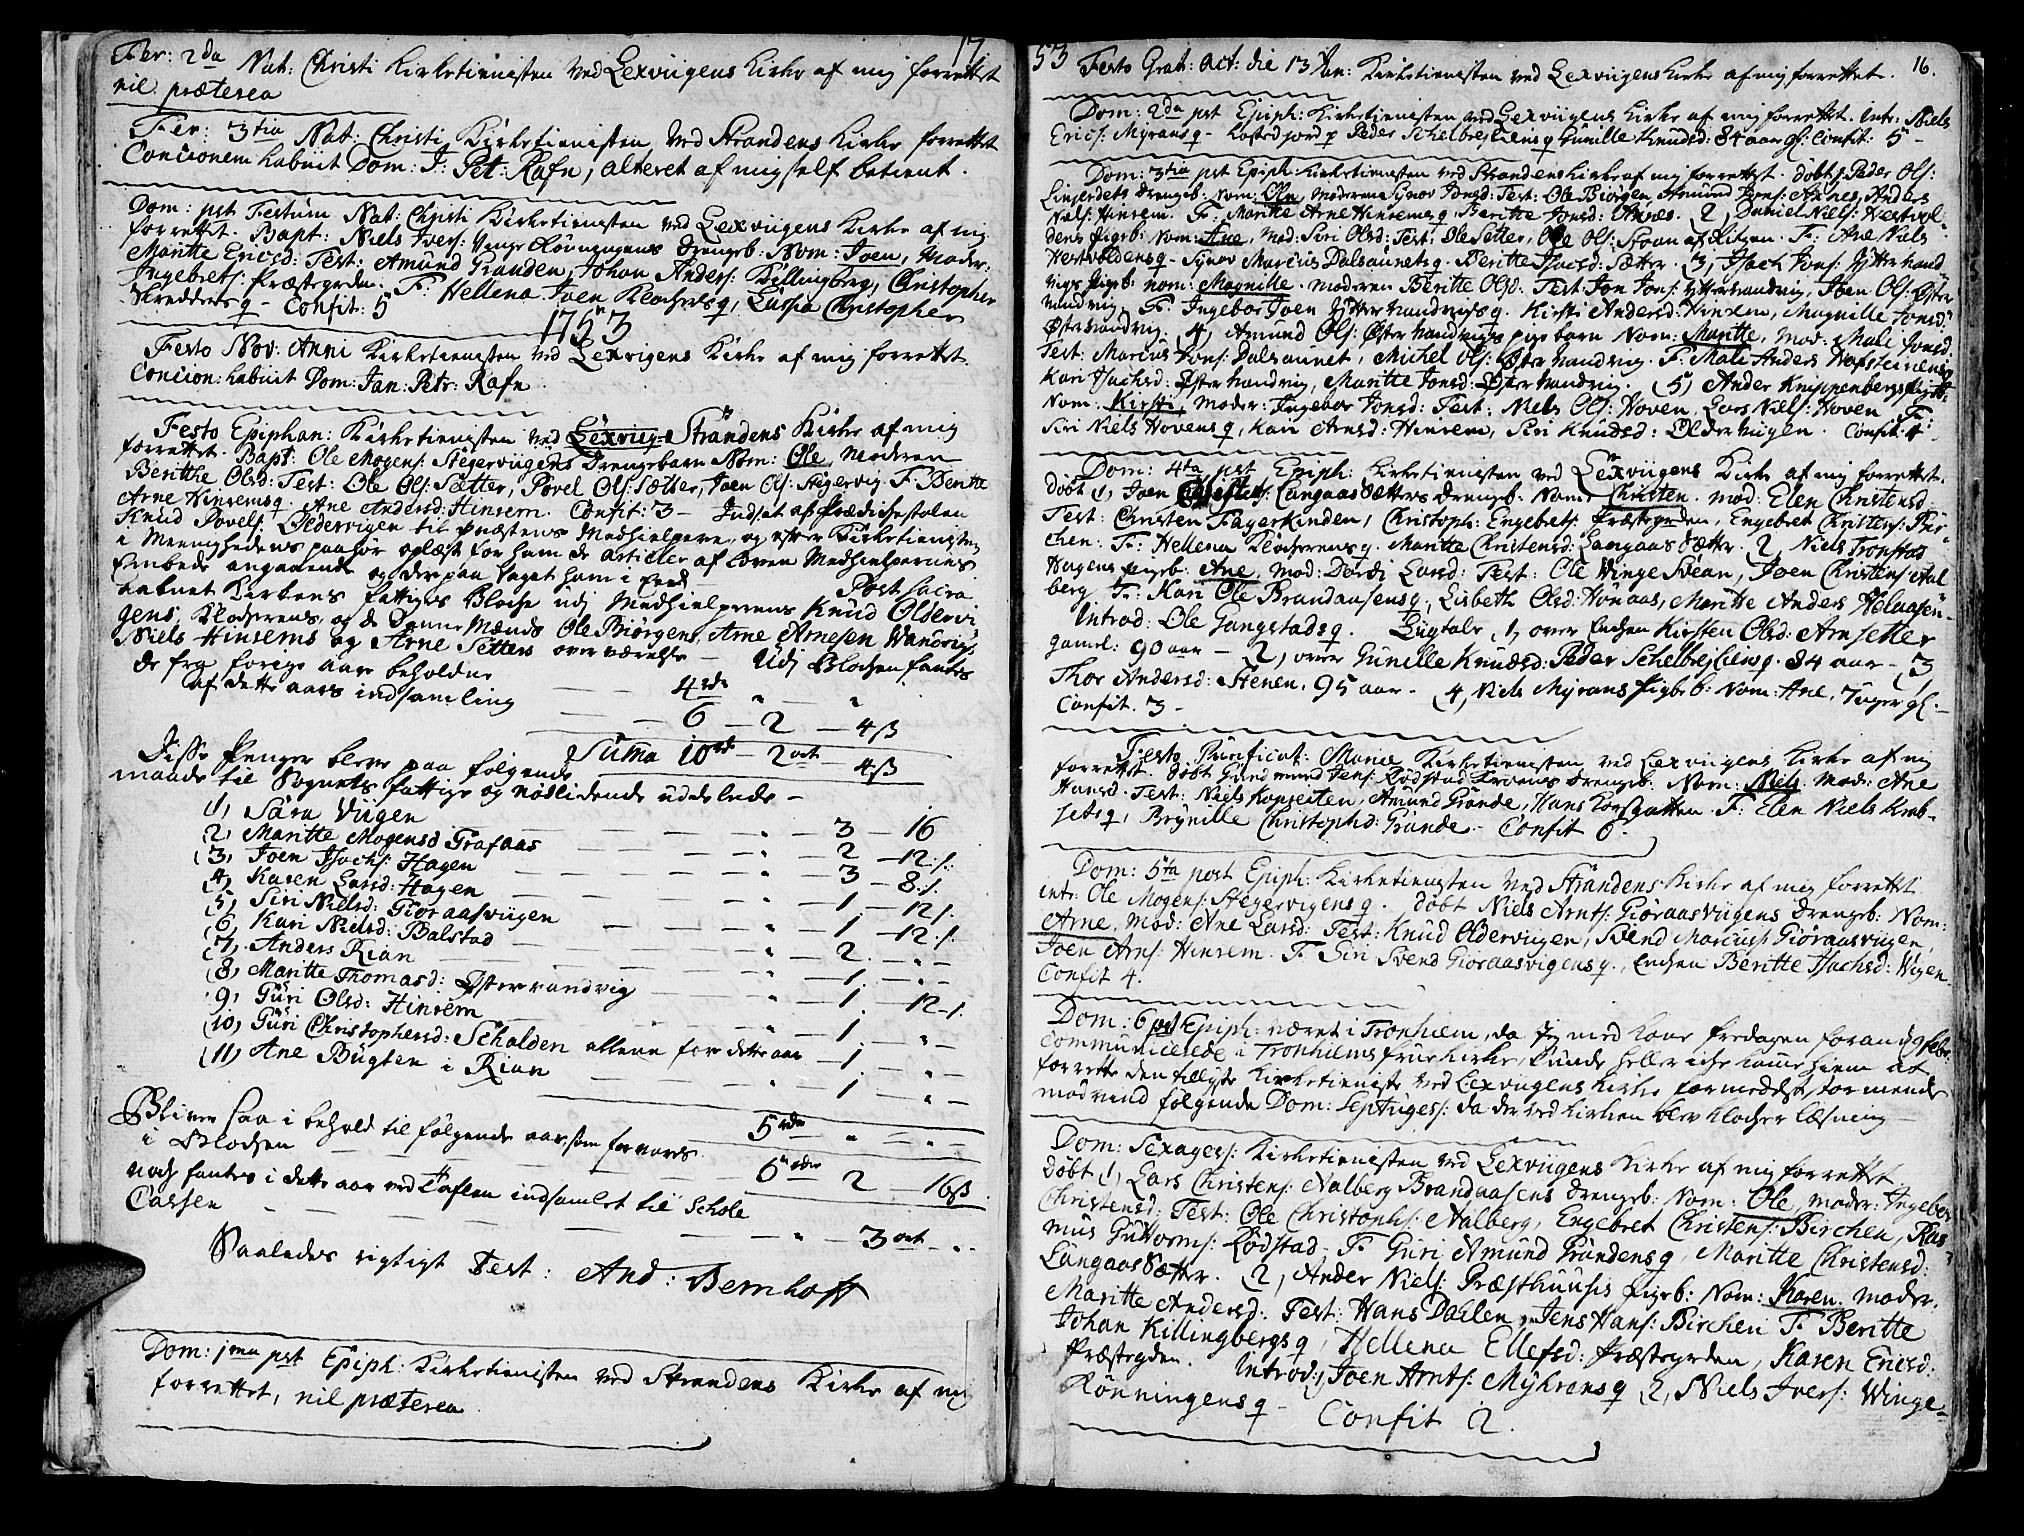 17
Fer: 2da Nat: Christi Kirketienesten ved Lexviigens Kirke af mig forrettet
nil præterea
Fer: 3tia Nat: Christi Kirketienesten ved Strandens Kirke forrettet
Concionem habuit Dom: J: Pet: Rafn, alteret af mig self betient.
Dom: pst Festum Nat: Christi Kirketienesten ved Lexviigens Kirke af mig
forrettet. Bapt: Niels Ivers: Vinge Rønningens Drengeb: Nom: Joen, Moder:
Maritte Ericsd: Test: Amund Granden, Johan Anders: Killingberg, Christopher
Ingebrets: Præstegrden. F: Hellena Joen Klocherisq, Caspia Christopher
Skreddersq - Confit: 5
1753
Festo Nov: Anni Kirketienesten ved Lexvigens Kirke af mig forrettet
Concion: habuit Dom: Jan: Petr: Rafn.
Festo Epiphan: Kirketienesten ved Lexviige Strandens Kirke af mig
forrettet. Bapt: Ole Mogens: Stegerviigens Drengebarn Nom: Ole, Moderen
Beritthe Olsd: Test: Ole Ols: Sætter, Povel Ols: Sætter, Joen Ols: Stegervig. F: Beritte
Arne Hinremsq Ane Andersd: Hinrem. Confit: 3 - Indsat af Prædichestolen
Knud Povels: Oldervigen til Præstens Medhielpere, og efter Kirketienesten
i Meenighedens paahør oplæst for ham de Articler af Loven Medhielpernes
Embede angaaende og derpaa taget ham i Eed - Post sacra
aabnet Kirkens fattiges Bloche udj Medhielperens Knud Oldervi
gens, Klocherens, og de Danne Mænds Ole Biørgens, Arne Arnesen Vandvig:
Niels Hinrems og Arne Setters overværelse - Udj Blochen fantes
de fra forige aar beholdne — 4 rdr " "
af dette aars indsamling — 6 — 2 — 4ß
Suma 10 rd — 2 ort 4ß
Disse Penger bleve paa følgende
maade til Sognets fattige og nødlidende uddelede -
(1) Sara Viigen — " — 3 — 16
(2) Maritte Mogensd Grafaas — " — 2 — 12./.
(3) Joen Isachs: Hagen — " — 3 — 8./.
(4) Karen Larsd: Hagen — " — 1 — 12./.
(5) Siri Nielsd: Gioraasviigen — " — 1 — 12./.
(6) Kari Nielsd: Balstad — " — 2 — " —
(7) Anders Rian — " — 1 — " —
(8) Maritte Thomasd: Østervandvig — " — 1 — 12./.
9) Guri Olsd: Hinrem — " — 1 — " —
(10) Guri Christophersd: Schalden allene for dette aar — 1 — " —
(11) Ane Bugten i Rian — 1 — " —
Bliver saa i behold til følgende aar som forvares 5 rdr " "
i Blochen
noch fantes i dette aar ved Taflen indsamlet til Schole 6 rdr 2 16ß
Cassen — " — 3 ort — "
Saaledes rigtigt Test: And: Bernhoft
Dom: 1ma pst Epiph: Kirketienesten ved Strandens Kirke af mig
forrettet, nil præterea.
53
16.
Festo Grat: act: die 13 Jan: Kirketienesten ved Lexviigens Kirke af mig forrettet.
Dom: 2da pst Epiph: Kirketienesten ved Lexviigens Kirke af mig forrettet. Intr: Niels
Erics: Myransq - kasted jord p Peder Schelbrejliensq Gunille Knudsd: 84 aar gl: Confit: 5 -
Dom: 3tia pst Epiph: Kirketienesten ved Strandens Kirke af mig forrettet. døbt 1, Peder Ols:
Linjerdets Drengeb: Nom: Ole, Moderen Synov Joensd: Test: Ole Biørgen, Amund Jons: Axnes, Anders
Niels: Hinrem. F: Maritte Arne Hinremsq Beritte Jonsd: Axnes. 2, Daniel Niels: Hestvol
dens Pigeb: Nom: Ane, Mod: Siri Olsd: Test: Ole Setter, Ole Ols: Staan af Ritzen. F: Ane Niels
Hestvoldensq - Synov Marcus Dalsaunetsq. Beritte Isachsd: Sætter. 3, Isach Jons: Ytter Vand
vigs Pigeb: nom: Magnille. moderen Beritte Olsd: Test: Jon Jons: Yttervandvig, Joen Ols: Øster
vandvig. F: Ingebor Joen Yttervandvigsq. Kirsti Andersd: Hinrem, Magnille Jonsd:
Østervandvig. 4, Amund Ols: Østervandvigs pigebarn Nom: Maritte, Mod: Mali Jonsd:
Test: Marcus Jons: Dalsaunet, Michel Ols: Østervandvig. F: Mali Anders Nafsteinensq
Kari Isachsd: Østervandvig, Maritte Jonsd: Østervandvig. (5) Ander Knippenbergs Pigeb:
Nom: Kirsti, Moder: Ingebor Jonsd: Test: Niels Ols: Hoven, Lars Niels: Hoven F:
Siri Niels Hovensq, Kari Arnsd: Hinrem, Siri Knudsd: Oldervügen. Confit: 4
Dom: 4ta pst Epiph: Kirketienesten ved Lexviigens Kirke af mig forrettet.
døbt 1, Joen Langaas Sætters Drengeb: Nom: Christen. mod: Elen Christensd
Test: Christen Fagerkinden, Christoph: Engebrets: Præstegrden, Engebret Christens: Bir
chen: F: Hellena Klocherensq. Maritte Christensd: Langaas Sætter. 2, Niels Tronstad
Hagens Pigeb: Ane, Mod: Dordi Larsd: Test: Ole Winge Svean, Joen Christens: Aal
berg F: Kari Ole Brandaasensq, Lisbeth Olsd: Hønaas, Maritte Anders Helaasen
Introd: Ole Gangstadsq. Liigtale 1, over Enchen Kirsten Olsd: Arnsetter
gaml: 90 aar - 2, over Gunille Knudsd: Peder Schelbrejliensq. 84 aar - (3
Thor Andersd: Stenen. 95 aar - 4, Niels Myrans Pigeb: Nom: Ane, 7 uger gl. -
Confit. 3 -
Festo Purificat: Mariæ Kirketienesten ved Lexviigens Kirke af mig
forrettet. døbt Gundmund Jens: Rødstad Drengeb: Nom: Niels mod: Ane
Hansd. Test: Niels Kopseiten, Amund Grande, Hans Korsbatten F: Elen Niels Krab-
setsq, Brynille Christophd: Grande - Confit 6.
Dom: 5ta post Epiph: Kirketienesten ved Strandens Kirke af mig forrettet
intr: Ole Mogens: Stegervigensq. døbt Niels Arnts: Gioraasviigens Drengeb: Nom:
Arne. Mod: Ane Larsd: Test: Knud Oldervügen, Svend Marcus: Gioraasviigen,
Joen Arns: Hinrem. F: Siri Svend Gioraasvigensq, Enchen Beritte Isachsd: Wigen.
Confit 4.
Dom: 6 pst Epiph: været i Tronhiem, da jeg med Kone fredagen foran d 9 febr:
communicerede i Tronhiems frue Kirke, kunde heller iche komme hiem at
forrette den tillyste Kirketieniste ved Lexviigens Kirke formedelst stormende
modvind følgende Dom: Septuages: da der ved Kirken blev Klocher læsning -
Dom: Sexages: Kirketienesten ved Lexviigens Kirke af mig forrettet.
Døbt 1, Lars Christens: Aalberg Brandaasens Drengeb: Nom: Ole, moder: Ingebor
Christensd: Test: Ole Christophs: Aalberg, Engebret Christens: Birchen, Ras
mus Guttorms: Rødstad. F: Guri Amund Grandensq, Maritte Christensd:
Langaas Sætter. 2, Ander Niels: Præsthuusis Pigeb: Nom: Karen. Moder.
Maritte Andersd: Test: Hans Dahlen, Jens Hans: Birchen F: Beritte
Johan Killingbergsq, Hellena Ellefsd: Præstegrden, Karen Ericsd:
Præstegrden. Introd: 1, Joen Arnts: Myhransq 2, Niels Ivers: Winge-
Rønningensq - Confit 12.